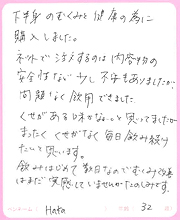 下半身のむくみと健康の為に
購入しました。
ネットで注文するのは内容物の
安全性など少し不安もありましたが、
問題なく飲用できました。
くせがある味かな。と思ってましたが
まったく くせがなく毎日飲み続け
たいと思います。
飲みはじめて数日なのでむくみ改善
はまだ実感していませんがたのしみです。
ペンネーム： Hata 32